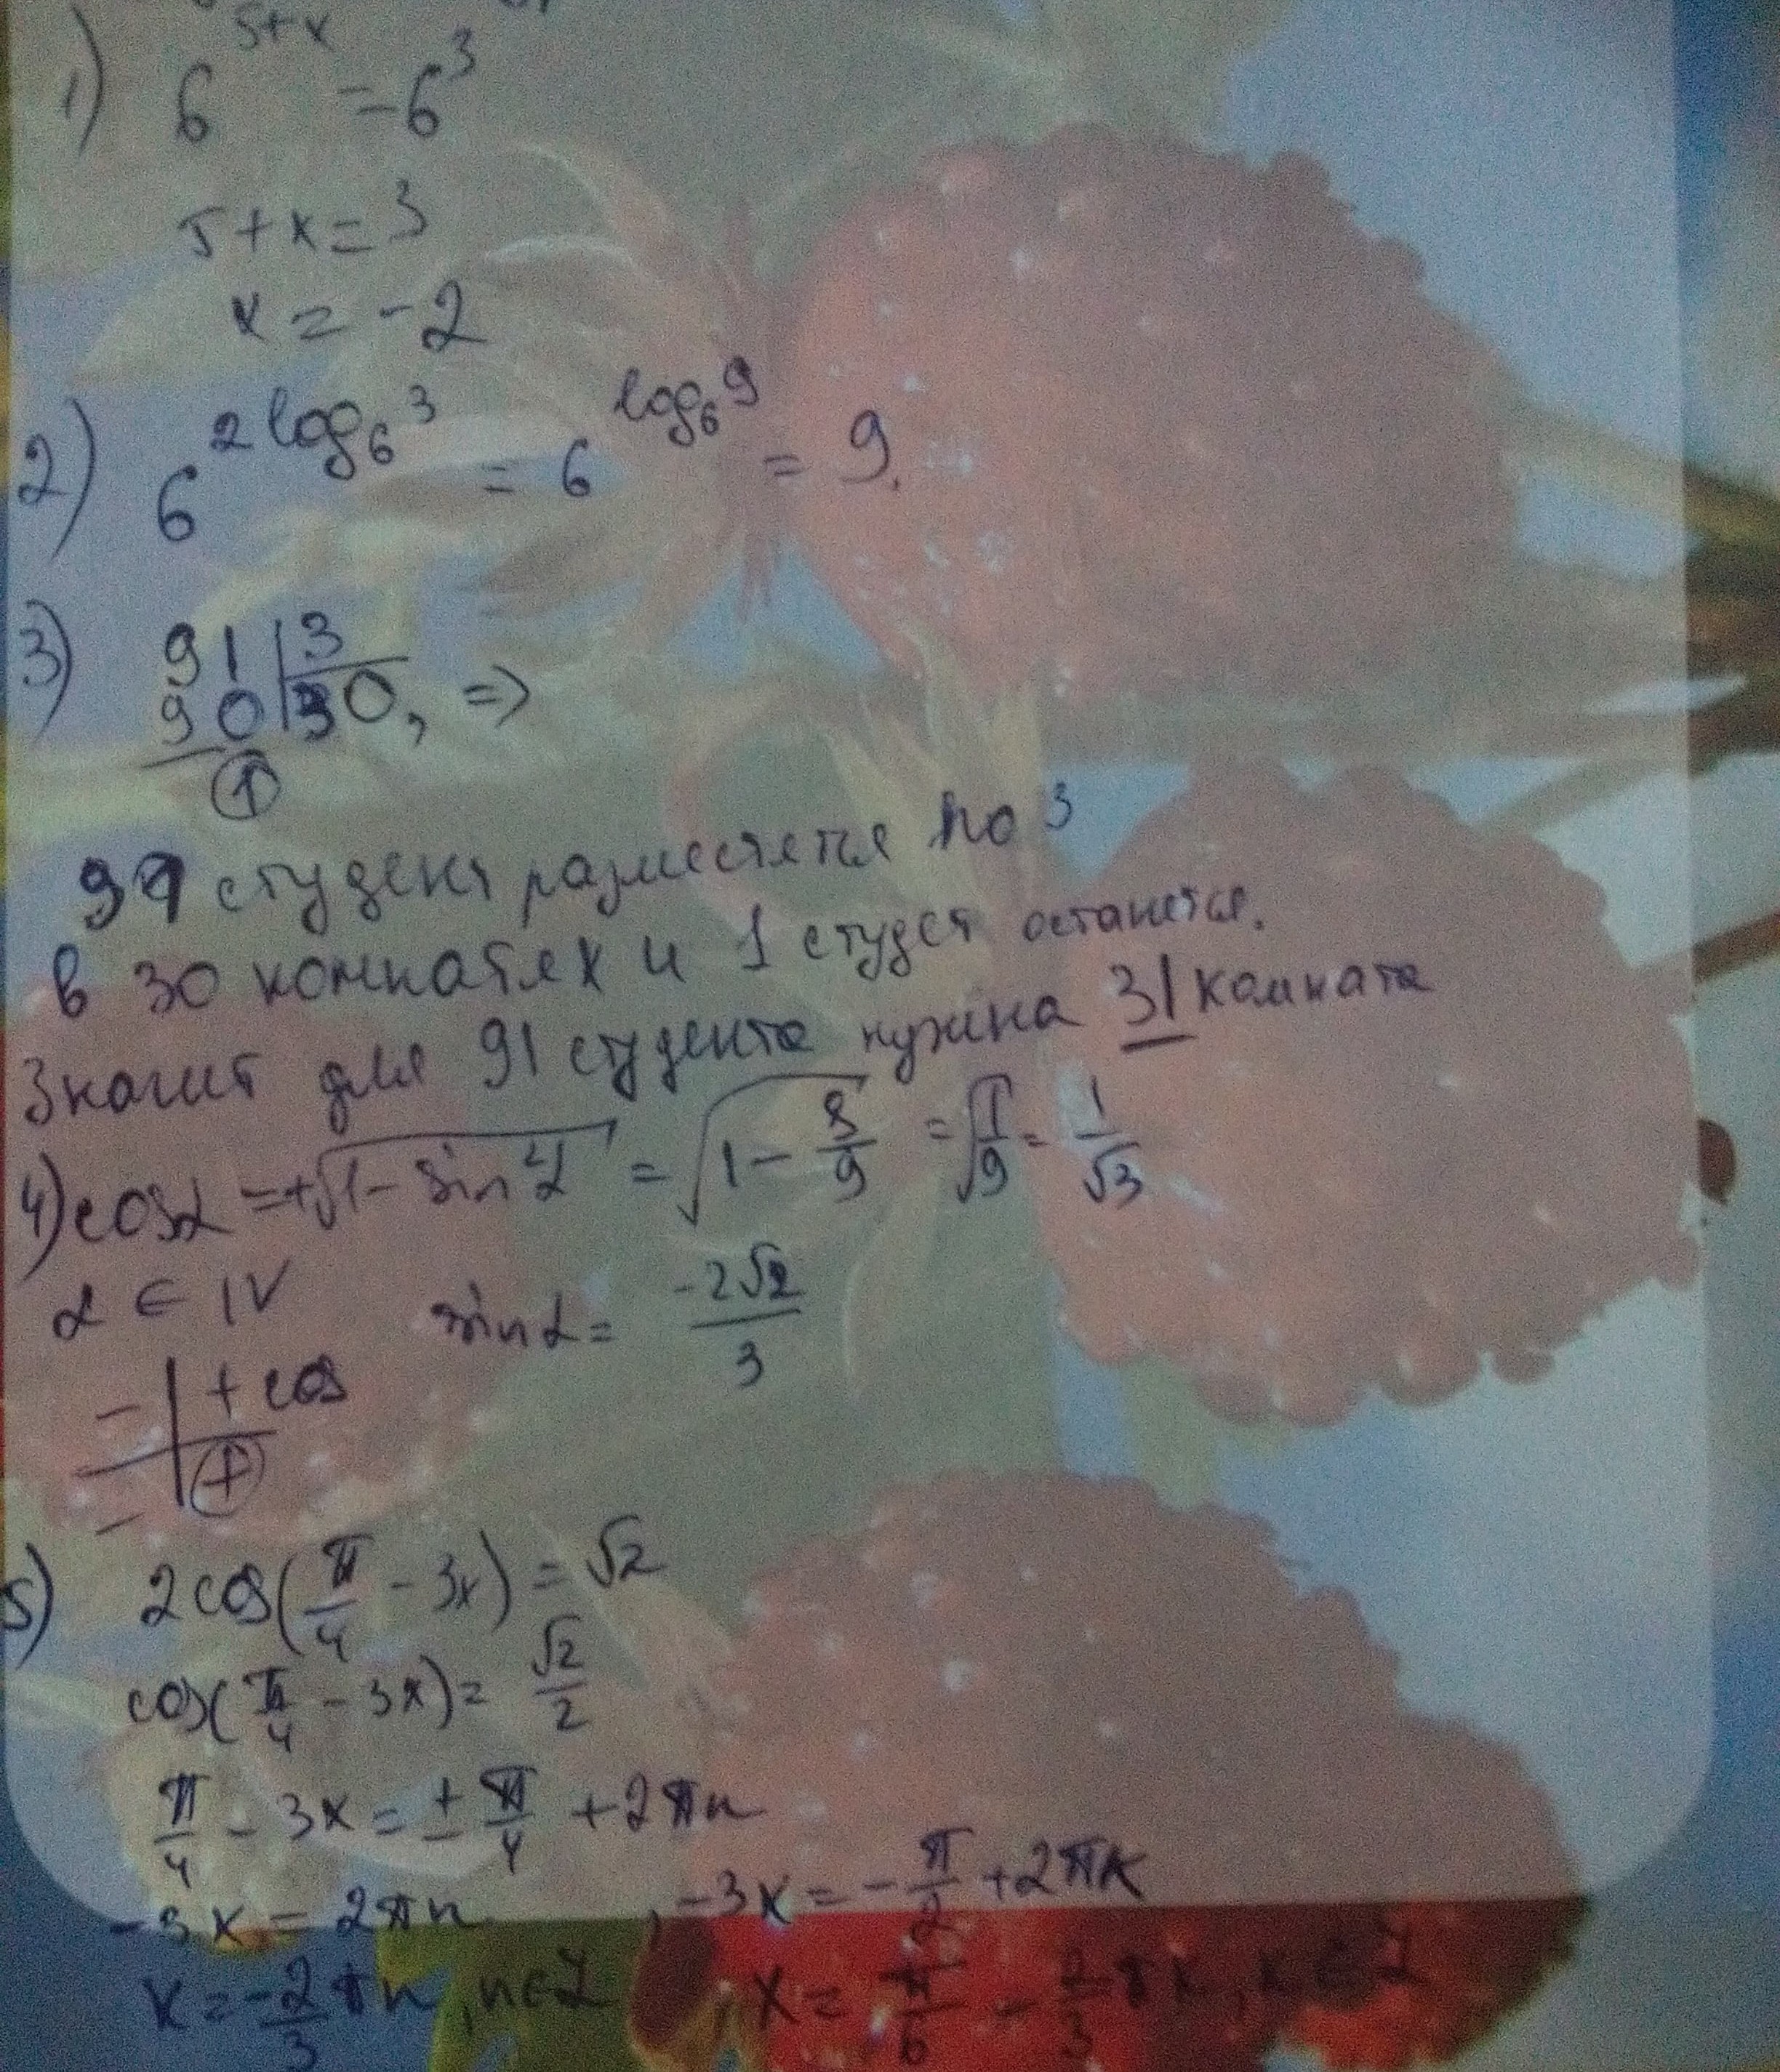 1) 6^(5+x) = 6^3
5+x=3
x = -2
2) 6^(2log_6 3) = 6^(log_6 9) = 9.
3) 91 | 3
90 | 30, =>
1
91 студент разместятся по 3
в 30 комнатах и 1 студет останется.
Значит для 91 студента нужна 31 комната
4) cosα = +√(1 - sin²α) = √(1 - 8/9) = √(1/9) = 1/√3
α ∈ IV sinα = -2√2/3
- | + cos
- | +
5) 2cos(π/4 - 3x) = √2
cos(π/4 - 3x) = √2/2
π/4 - 3x = ± π/4 + 2πn
-3x = 2πn , -3x = -π/2 + 2πk
x = -2/3 πn, n∈Z , x = π/6 - 2/3 πk, k∈Z